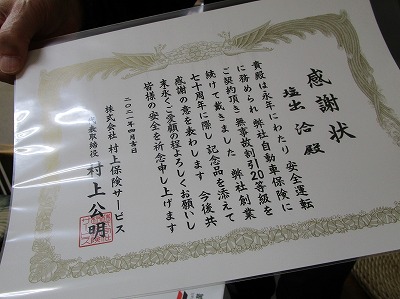 感謝状
塩出 洽 殿
貴殿は永年にわたり 安全運転
に務められ 弊社自動車保険に
ご契約頂き 無事故割引20等級を
続けて戴きました 弊社創業
七十周年に際し 記念品を添えて
感謝の意を表わします 今後共
末永くご愛顧の程よろしくお願いし
皆様の安全を祈念申し上げます
二〇二一年四月吉日
株式会社 村上保険サービス
代表取締役 村上公明